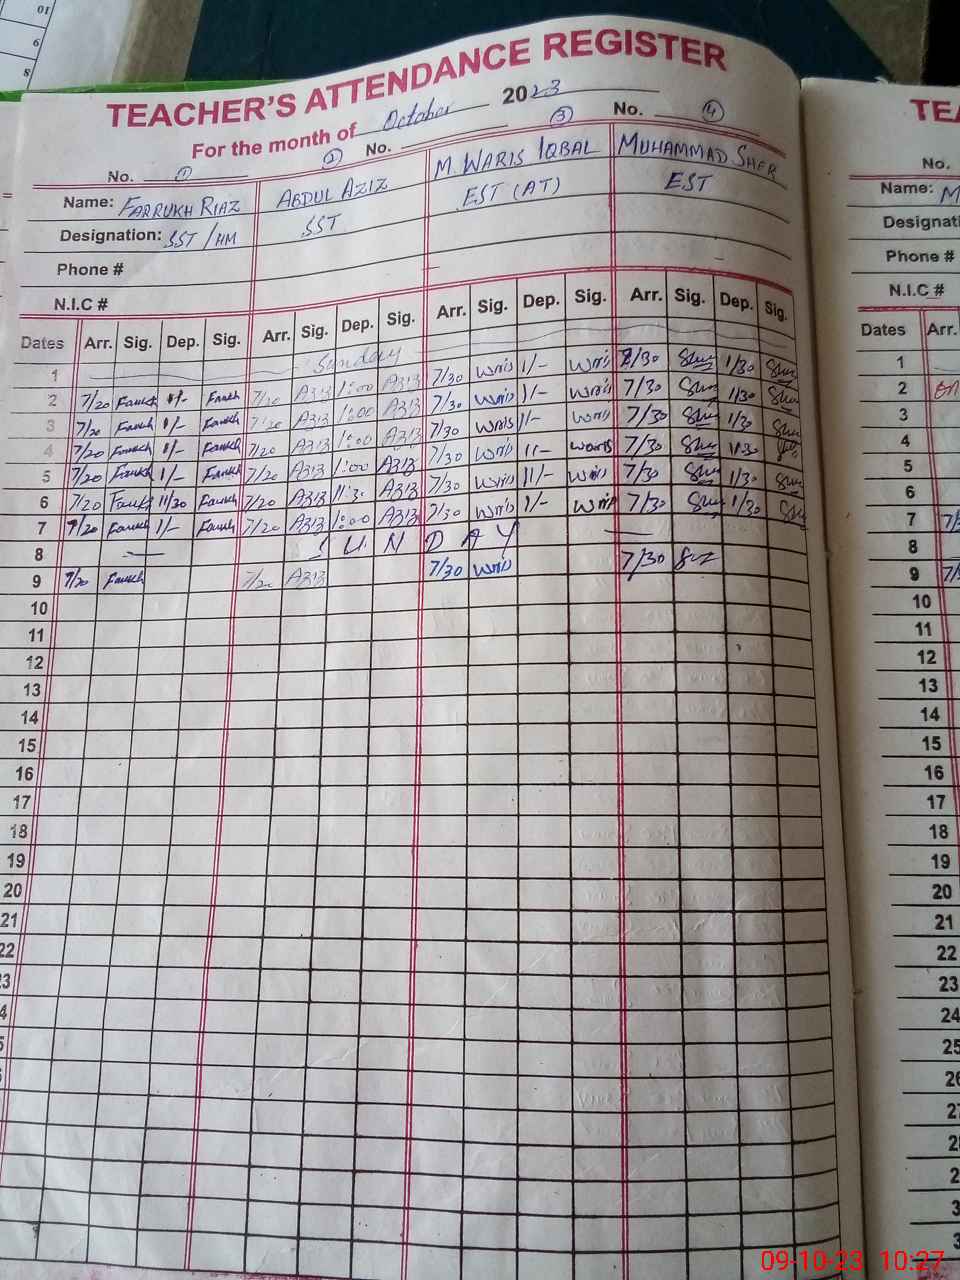 10
9
8
TEACHER'S ATTENDANCE REGISTER
For the month of October 2023
No. ① ② No. ③ No. ④
Name: FARRUKH RIAZ ABDUL AZIZ M. WARIS IQBAL MUHAMMAD SHER
Designation: SST/HM SST EST (AT) EST
Phone #
N.I.C #
Dates Arr. Sig. Dep. Sig. Arr. Sig. Dep. Sig. Arr. Sig. Dep. Sig. Arr. Sig. Dep. Sig.
1 Sunday
2 7/20 Farrukh 1/- Farrukh 7/20 Aziz 1:00 Aziz 7/30 Waris 1/- Waris 7/30 1/30
3 7/20 Farrukh 1/- Farrukh 7/20 Aziz 1:00 Aziz 7/30 Waris 1/- Waris 7/30 1/30
4 7/20 Farrukh 1/- Farrukh 7/20 Aziz 1:00 Aziz 7/30 Waris 1/- Waris 7/30 1/30
5 7/20 Farrukh 1/- Farrukh 7/20 Aziz 1:00 Aziz 7/30 Waris Waris 7/30
6 7/20 Farrukh 11/30 Farrukh 7/20 Aziz 11:30 Aziz 7/30 Waris Waris 7/30
7 7/20 Farrukh 1/- Farrukh 7/20 Aziz 1:00 Aziz 7/30 Waris 1/- Waris 7/30 1/30
8 SUNDAY
9 7/20 Farrukh 7/20 Aziz 7/30 Waris 7/30
10
11
12
13
14
15
16
17
18
19
20
21
22
23
TEA
No.
Name: M
Designati
Phone #
N.I.C #
Dates Arr.
1
2
3
4
5
6
7
8
9
10
11
12
13
14
15
16
17
18
19
20
21
22
23
24
25
26
27
09-10-23 10:27